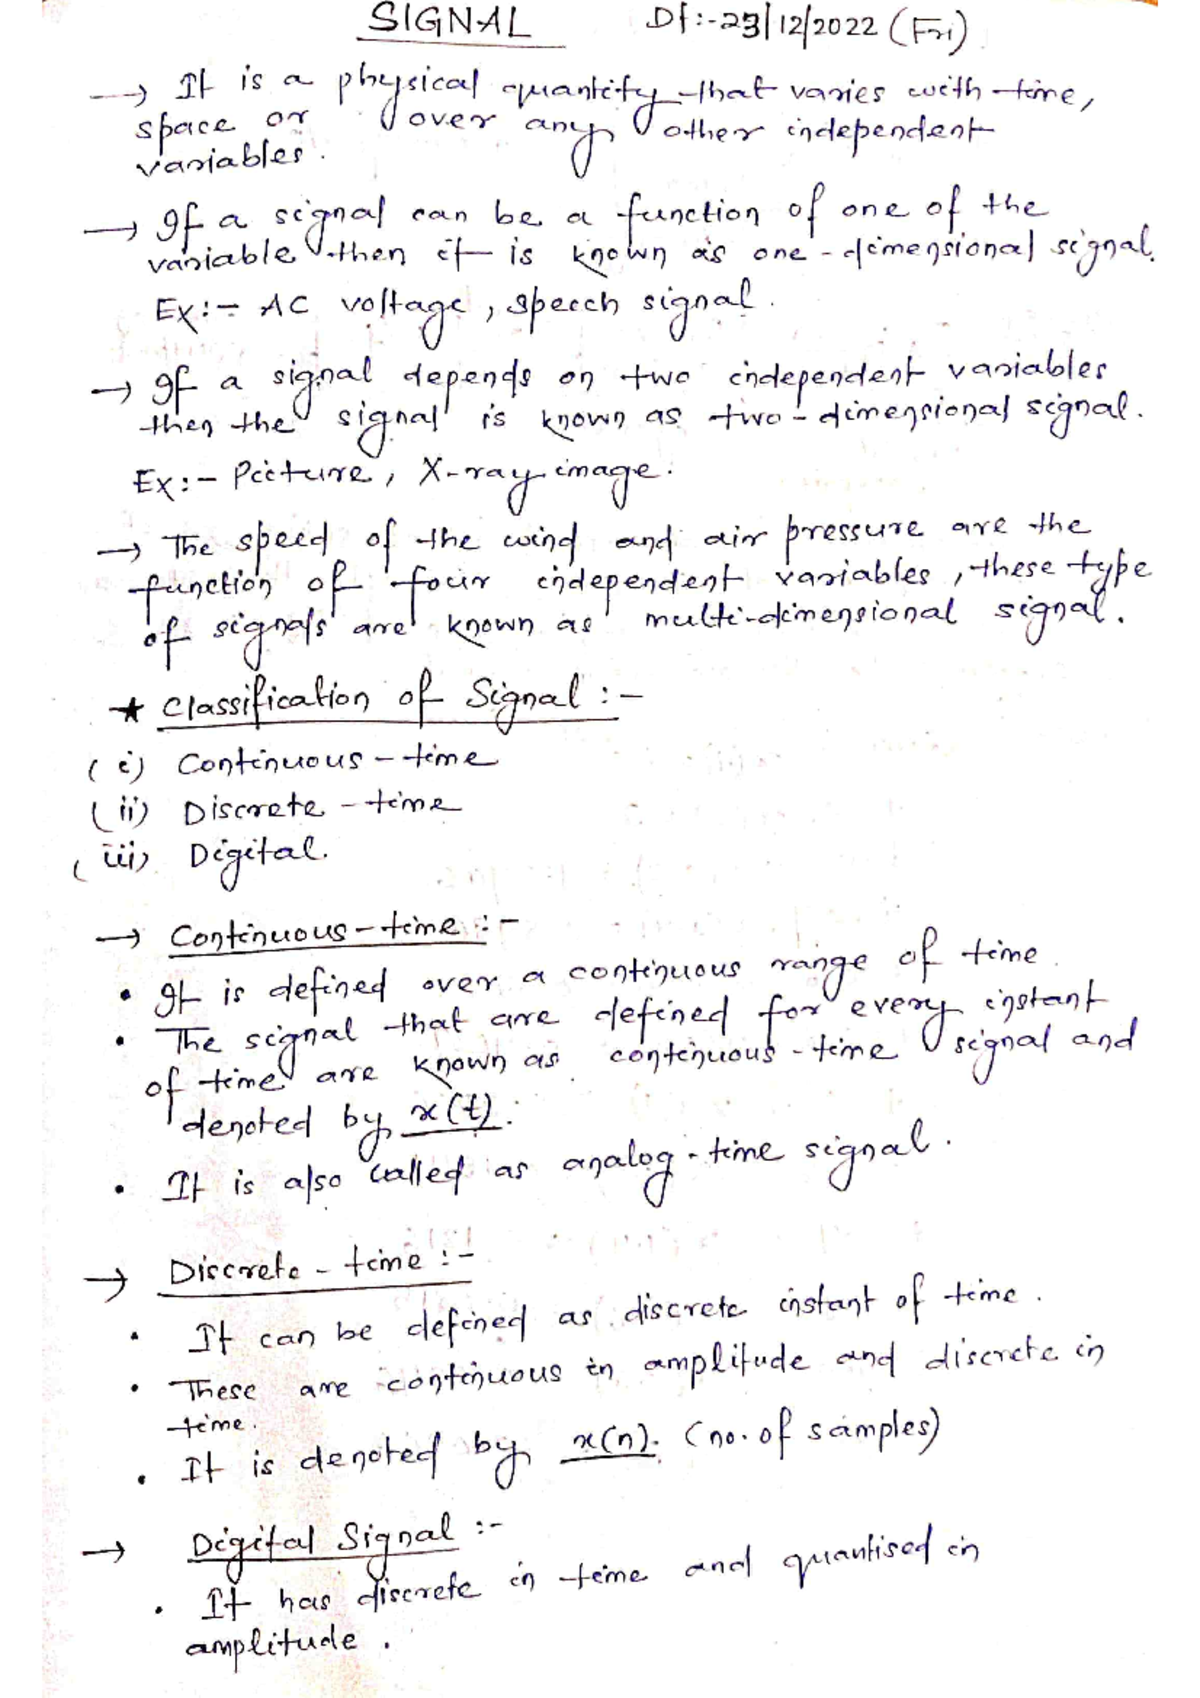 SIGNAL Dt:-23/12/2022 (Fri)
→ It is a physical quantity that varies with time,
space or over any other independent
variables.
→ If a signal can be a function of one of the
variable then it is known as one-dimensional signal.
Ex:- AC voltage, speech signal.
→ If a signal depends on two independent variables
then the signal is known as two-dimensional signal.
Ex:- Picture, X-ray image.
→ The speed of the wind and air pressure are the
function of four independent variables, these type
of signals are known as multi-dimensional signal.
★ Classification of Signal :-
(i) Continuous-time
(ii) Discrete-time
(iii) Digital.
→ Continuous-time :-
• It is defined over a continuous range of time.
• The signal that are defined for every instant
of time are known as continuous-time signal and
denoted by x(t).
• It is also called as analog-time signal.
→ Discrete-time :-
• It can be defined as discrete instant of time.
• These are continuous in amplitude and discrete in
time.
• It is denoted by x(n). (no. of samples)
→ Digital Signal :-
• It has discrete in time and quantised in
amplitude.